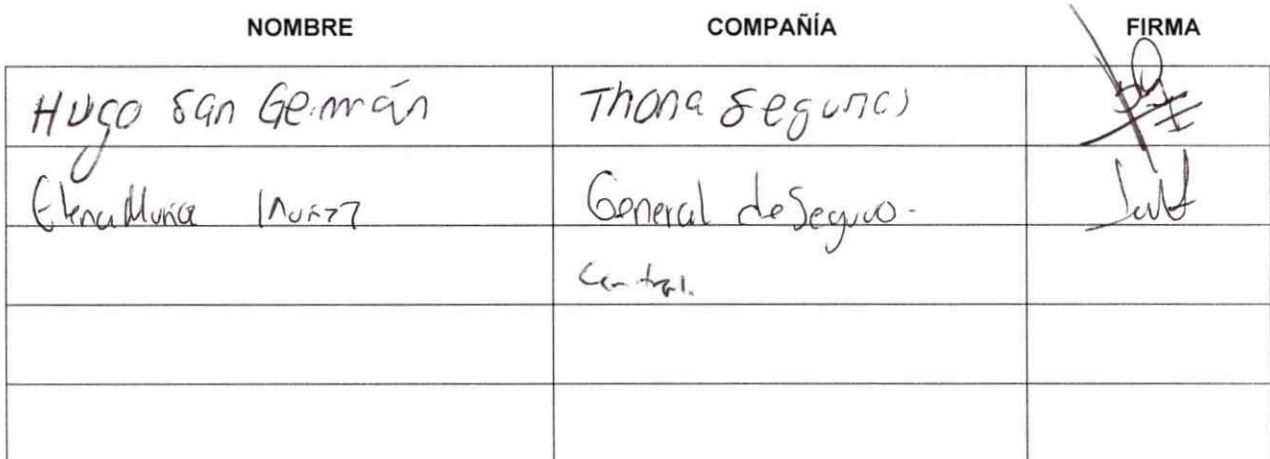 NOMBRE COMPAÑÍA FIRMA
Hugo San Germán Thona Seguros
Elena Muñoz General de Seguro.
Central.